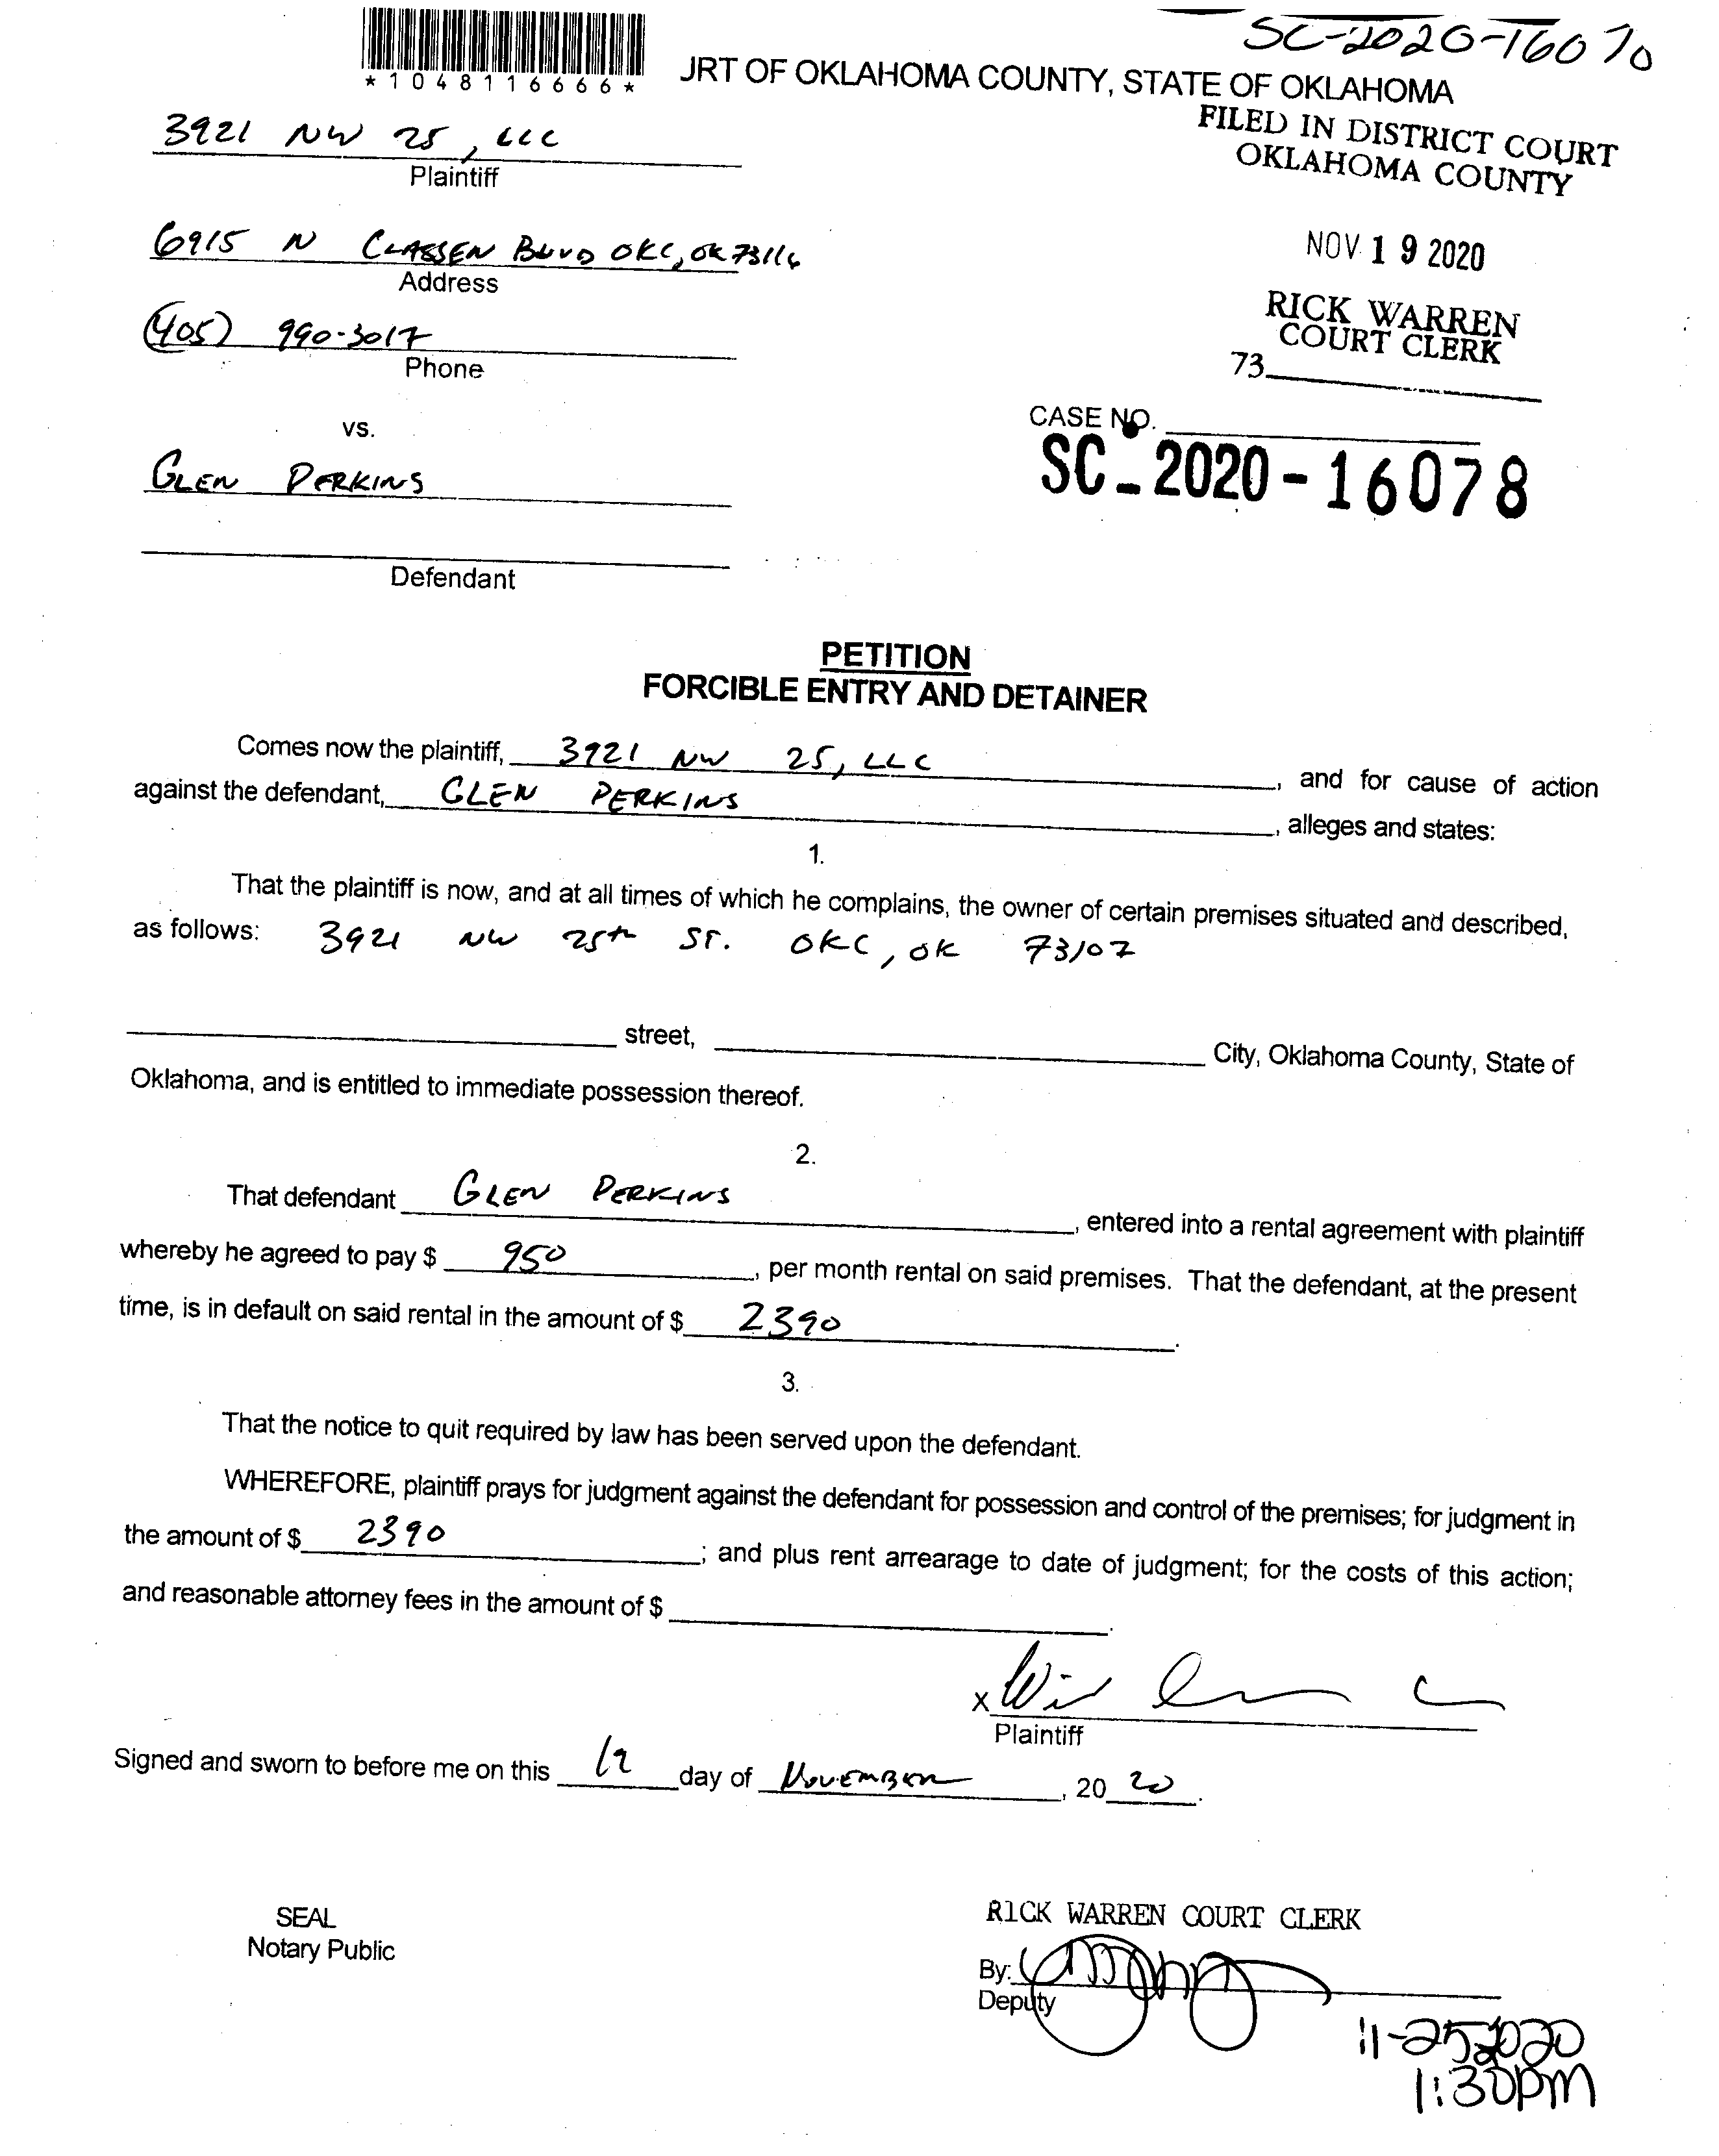 SC-2020-16070
*1048116666*
JRT OF OKLAHOMA COUNTY, STATE OF OKLAHOMA
FILED IN DISTRICT COURT
OKLAHOMA COUNTY
3921 NW 25, LLC
Plaintiff
6915 N CLASSEN BLVD OKC, OK 73116
Address
NOV 19 2020
(405) 990-3017
Phone
RICK WARREN
COURT CLERK
73
vs.
CASE NO.
SC-2020-16078
GLEN PERKINS
Defendant
PETITION
FORCIBLE ENTRY AND DETAINER
Comes now the plaintiff, 3921 NW 25, LLC, and for cause of action
against the defendant, GLEN PERKINS, alleges and states:
1.
That the plaintiff is now, and at all times of which he complains, the owner of certain premises situated and described,
as follows: 3921 NW 25th ST. OKC, OK 73107
street, City, Oklahoma County, State of
Oklahoma, and is entitled to immediate possession thereof.
2.
That defendant GLEN PERKINS, entered into a rental agreement with plaintiff
whereby he agreed to pay $ 950, per month rental on said premises. That the defendant, at the present
time, is in default on said rental in the amount of $ 2390.
3.
That the notice to quit required by law has been served upon the defendant.
WHEREFORE, plaintiff prays for judgment against the defendant for possession and control of the premises; for judgment in
the amount of $ 2390; and plus rent arrearage to date of judgment; for the costs of this action;
and reasonable attorney fees in the amount of $ .
x
Plaintiff
Signed and sworn to before me on this 19 day of NOVEMBER, 20 20.
SEAL
Notary Public
RICK WARREN COURT CLERK
By:
Deputy
11-25-2020
1:30pm